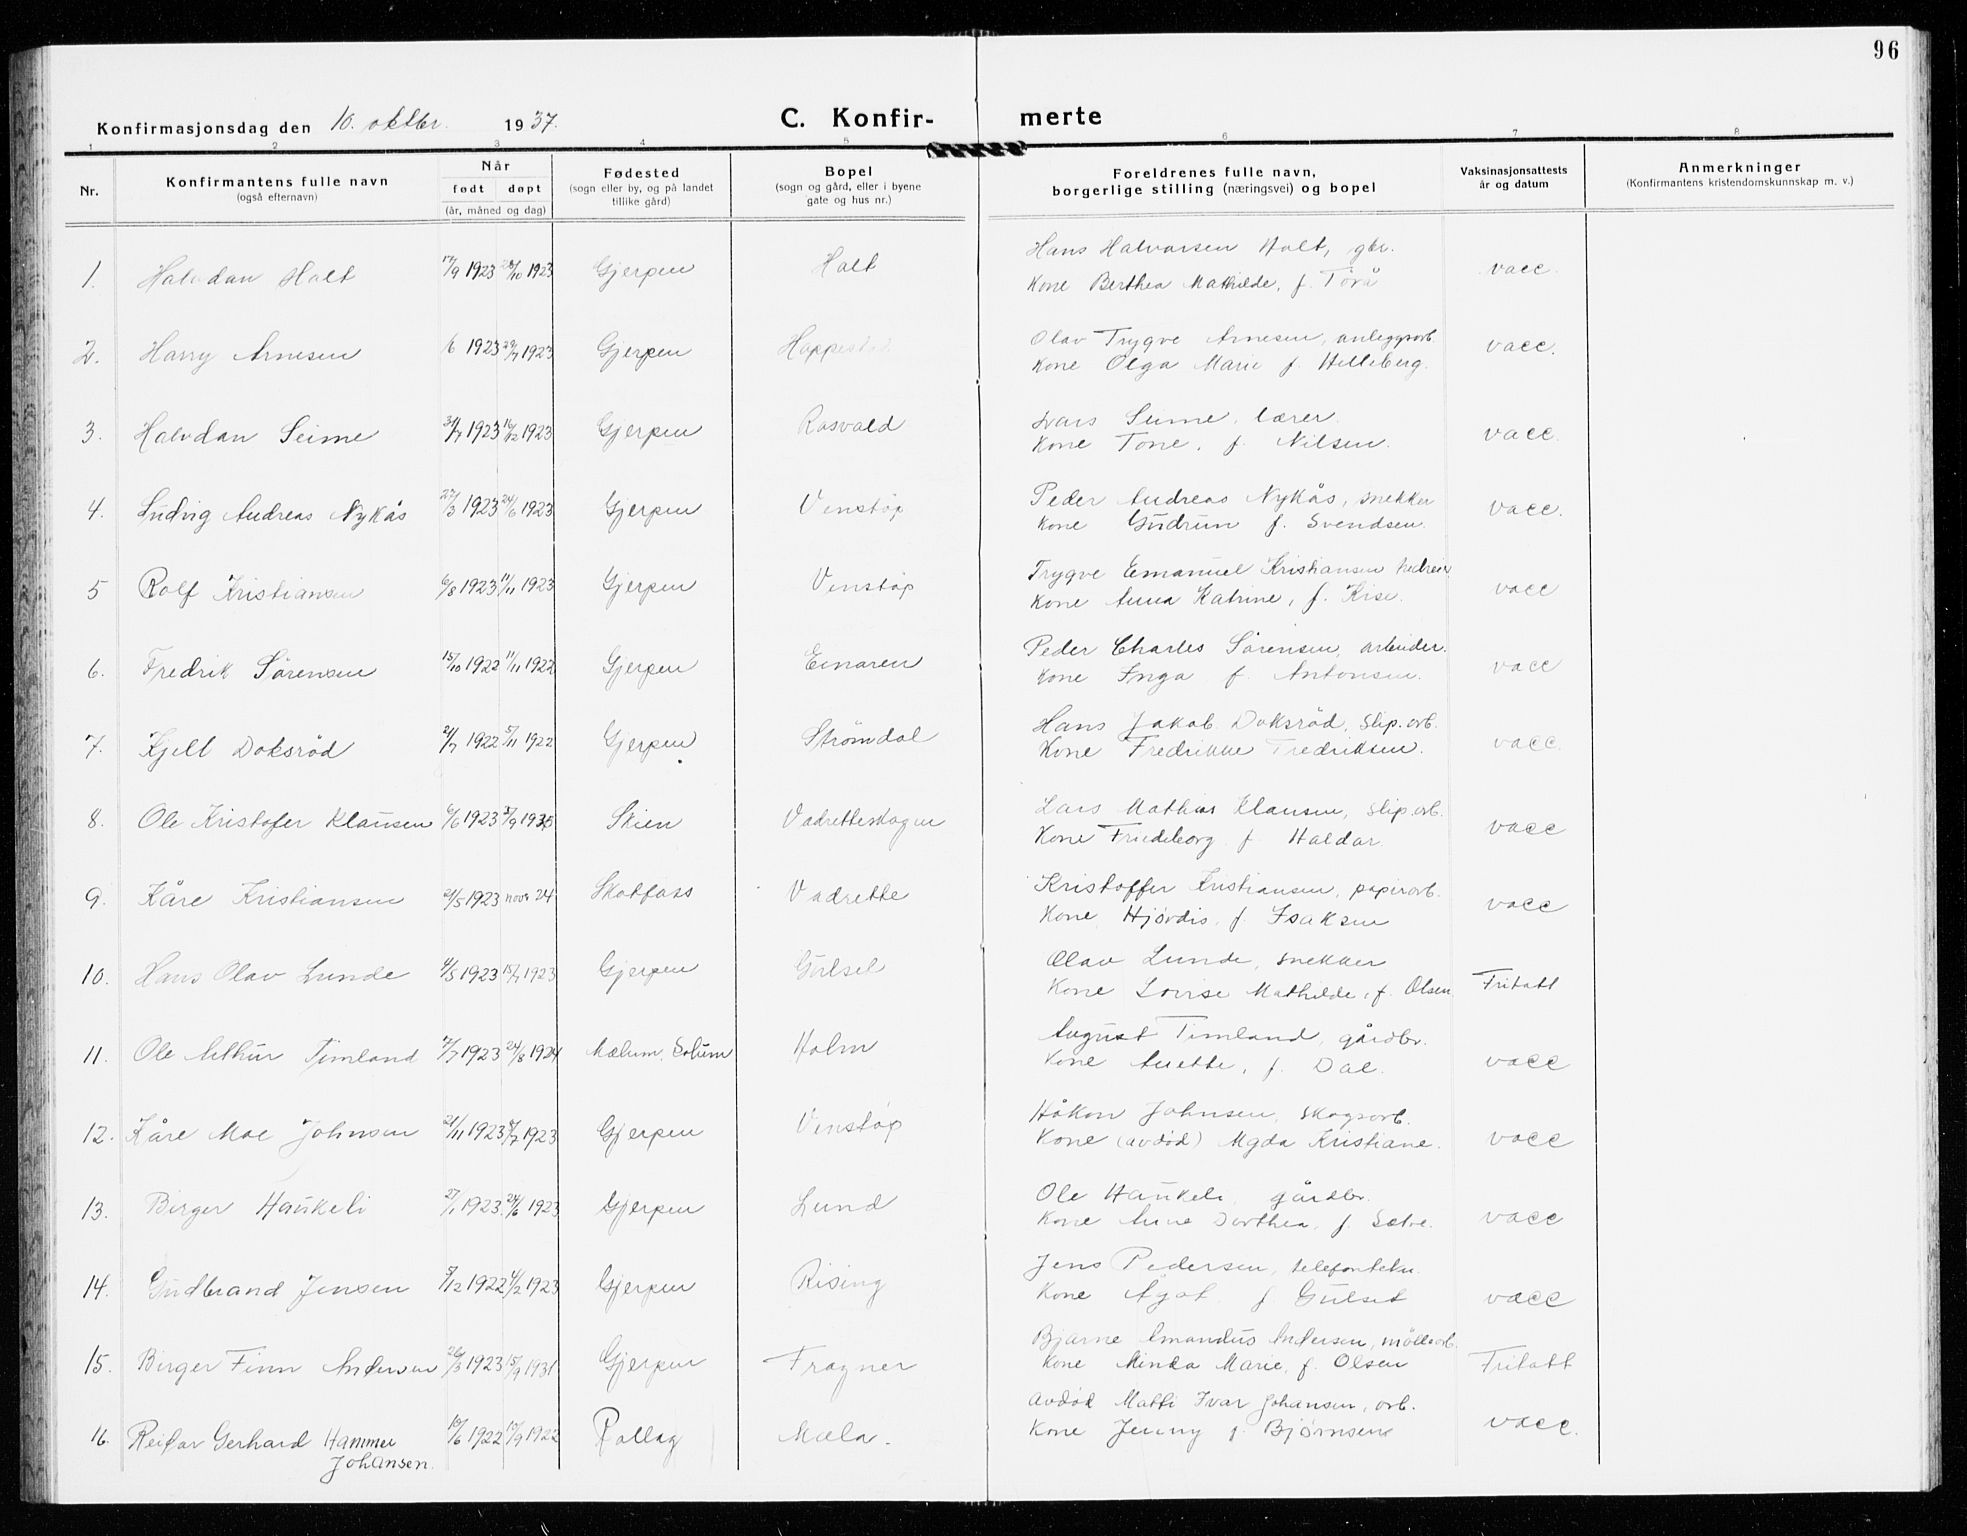 96
Konfirmasjonsdag den 10. oktbr. 1937.
C. Konfir- merte
1 2 3 4 5 6 7 8
Nr.
Konfirmantens fulle navn
(også efternavn)
Når
født døpt
(år, måned og dag)
Fødested
(sogn eller by, og på landet
tillike gård)
Bopel
(sogn og gård, eller i byene
gate og hus nr.)
Foreldrenes fulle navn,
borgerlige stilling (næringsvei) og bopel
Vaksinasjonsattests
år og datum
Anmerkninger
(Konfirmantens kristendomskunnskap m. v.)
1. Halvdan Holt 17/9 1923 28/10 1923 Gjerpen Holt Hans Halvorsen Holt, gbr. vacc.
Kone Berthea Mathilde, f. Törå
2. Harry Arnesen /6 1923 29/7 1923 Gjerpen Hoppestad Olav Trygve Arnesen, anleggsarb. vacc.
Kone Olga Marie f. Helleberg.
3. Halvdan Seime 31/7 1923 16/12 1923 Gjerpen Rasvald Lars Seime, lærer. vacc.
Kone Tone, f. Nilsen.
4. Ludvig Andreas Nykås 27/3 1923 24/6 1923 Gjerpen Venstøp Peder Andreas Nykås, snekker vacc.
Kone Gudrun f. Svendsen.
5 Rolf Kristiansen 6/8 1923 11/11 1923 Gjerpen Venstøp Trygve Emanuel Kristiansen vacc
Kone Anna Katrine, f. Kise.
6. Fredrik Sörensen 15/10 1922 11/11 1922 Gjerpen Einaren Peder Charles Sörensen, arbeider. vacc
Kone Inga f. Antonsen.
7. Kjell Doksröd 21/7 1922 5/11 1922 Gjerpen Strömdal Hans Jakob Doksröd, slip.arb. vacc.
Kone Fredrikke Fredriksen.
8. Ole Kristofer Klausen 6/6 1923 Skien Vadretteskogen Lars Mathias Klausen, slip.arb. vacc
Kone Friedeborg f. Haldar.
9. Kåre Kristiansen 21/5 1923 novr 24 Skotfoss Vadrette Kristoffer Kristiansen, papirarb. vacc
Kone Hjördis, f. Isaksen
10. Hans Olav Lunde 4/5 1923 15/7 1923 Gjerpen Gulset Olav Lunde, snekker Fritatt
Kone Lovise Mathilde, f. Olsen
11. Ole Arthur Timland 17/7 1923 24/8 1924 Mælum, Solum Holm August Timland, gårdbr. vacc
Kone Anette, f. Dal.
12. Kåre Moe Johnsen 21/11 1923 1923 Gjerpen Venstøp Håkon Johnsen, skogsarb. vacc
Kone (avdöd) Mgda Kristiane.
13. Birger Haukeli 27/1 1923 24/6 1923 Gjerpen Lund Ole Haukeli, gårdbr. vacc
Kone Anne Dorthea, f. Sætre.
14. Gudbrand Jensen 5/12 1922 4/2 1923 Gjerpen Rising Jens Pedersen, vacc
Kone Ågot f. Gulset
15. Birger Finn Andersen 26/3 1923 15/9 1931 Gjerpen Frogner Bjarne Amandus Andersen, möllearb. Fritatt
Kone Minda Marie, f. Olsen
16. Reidar Gerhard Hammer 19/6 1922 10/9 1922 Rollag Mæla. Avdöd Matti Ivar Johansen, arb. vacc.
Johansen. Kone Jenny f. Björnsen